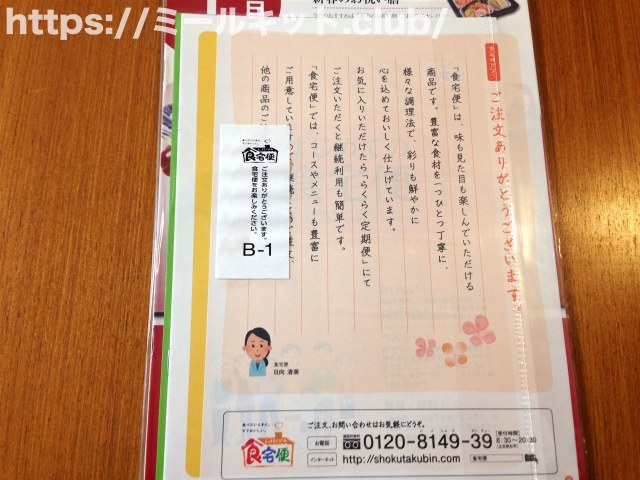 https://ミールキット.club/
ご注文ありがとうございます。
「食宅便」は、味も見た目も楽しんでいただける
商品です。豊富な食材を一つひとつ丁寧に、
様々な調理法で、彩りも鮮やかに
心を込めておいしく仕上げています。
お気に入りいただけたら「らくらく定期便」にて
ご注文いただくと継続利用も簡単です。
「食宅便」では、コースやメニューも豊富に
ご用意しています
他の商品のご
食宅便
ご注文ありがとうございます。
食宅便をお楽しみください。
B-1
食宅便
日向 清美
ご注文、お問い合わせはお気軽にどうぞ。
食宅便
お電話
0120-8149-39
[受付時間]
8:30~20:30
インターネット
http://shokutakubin.com
食宅便